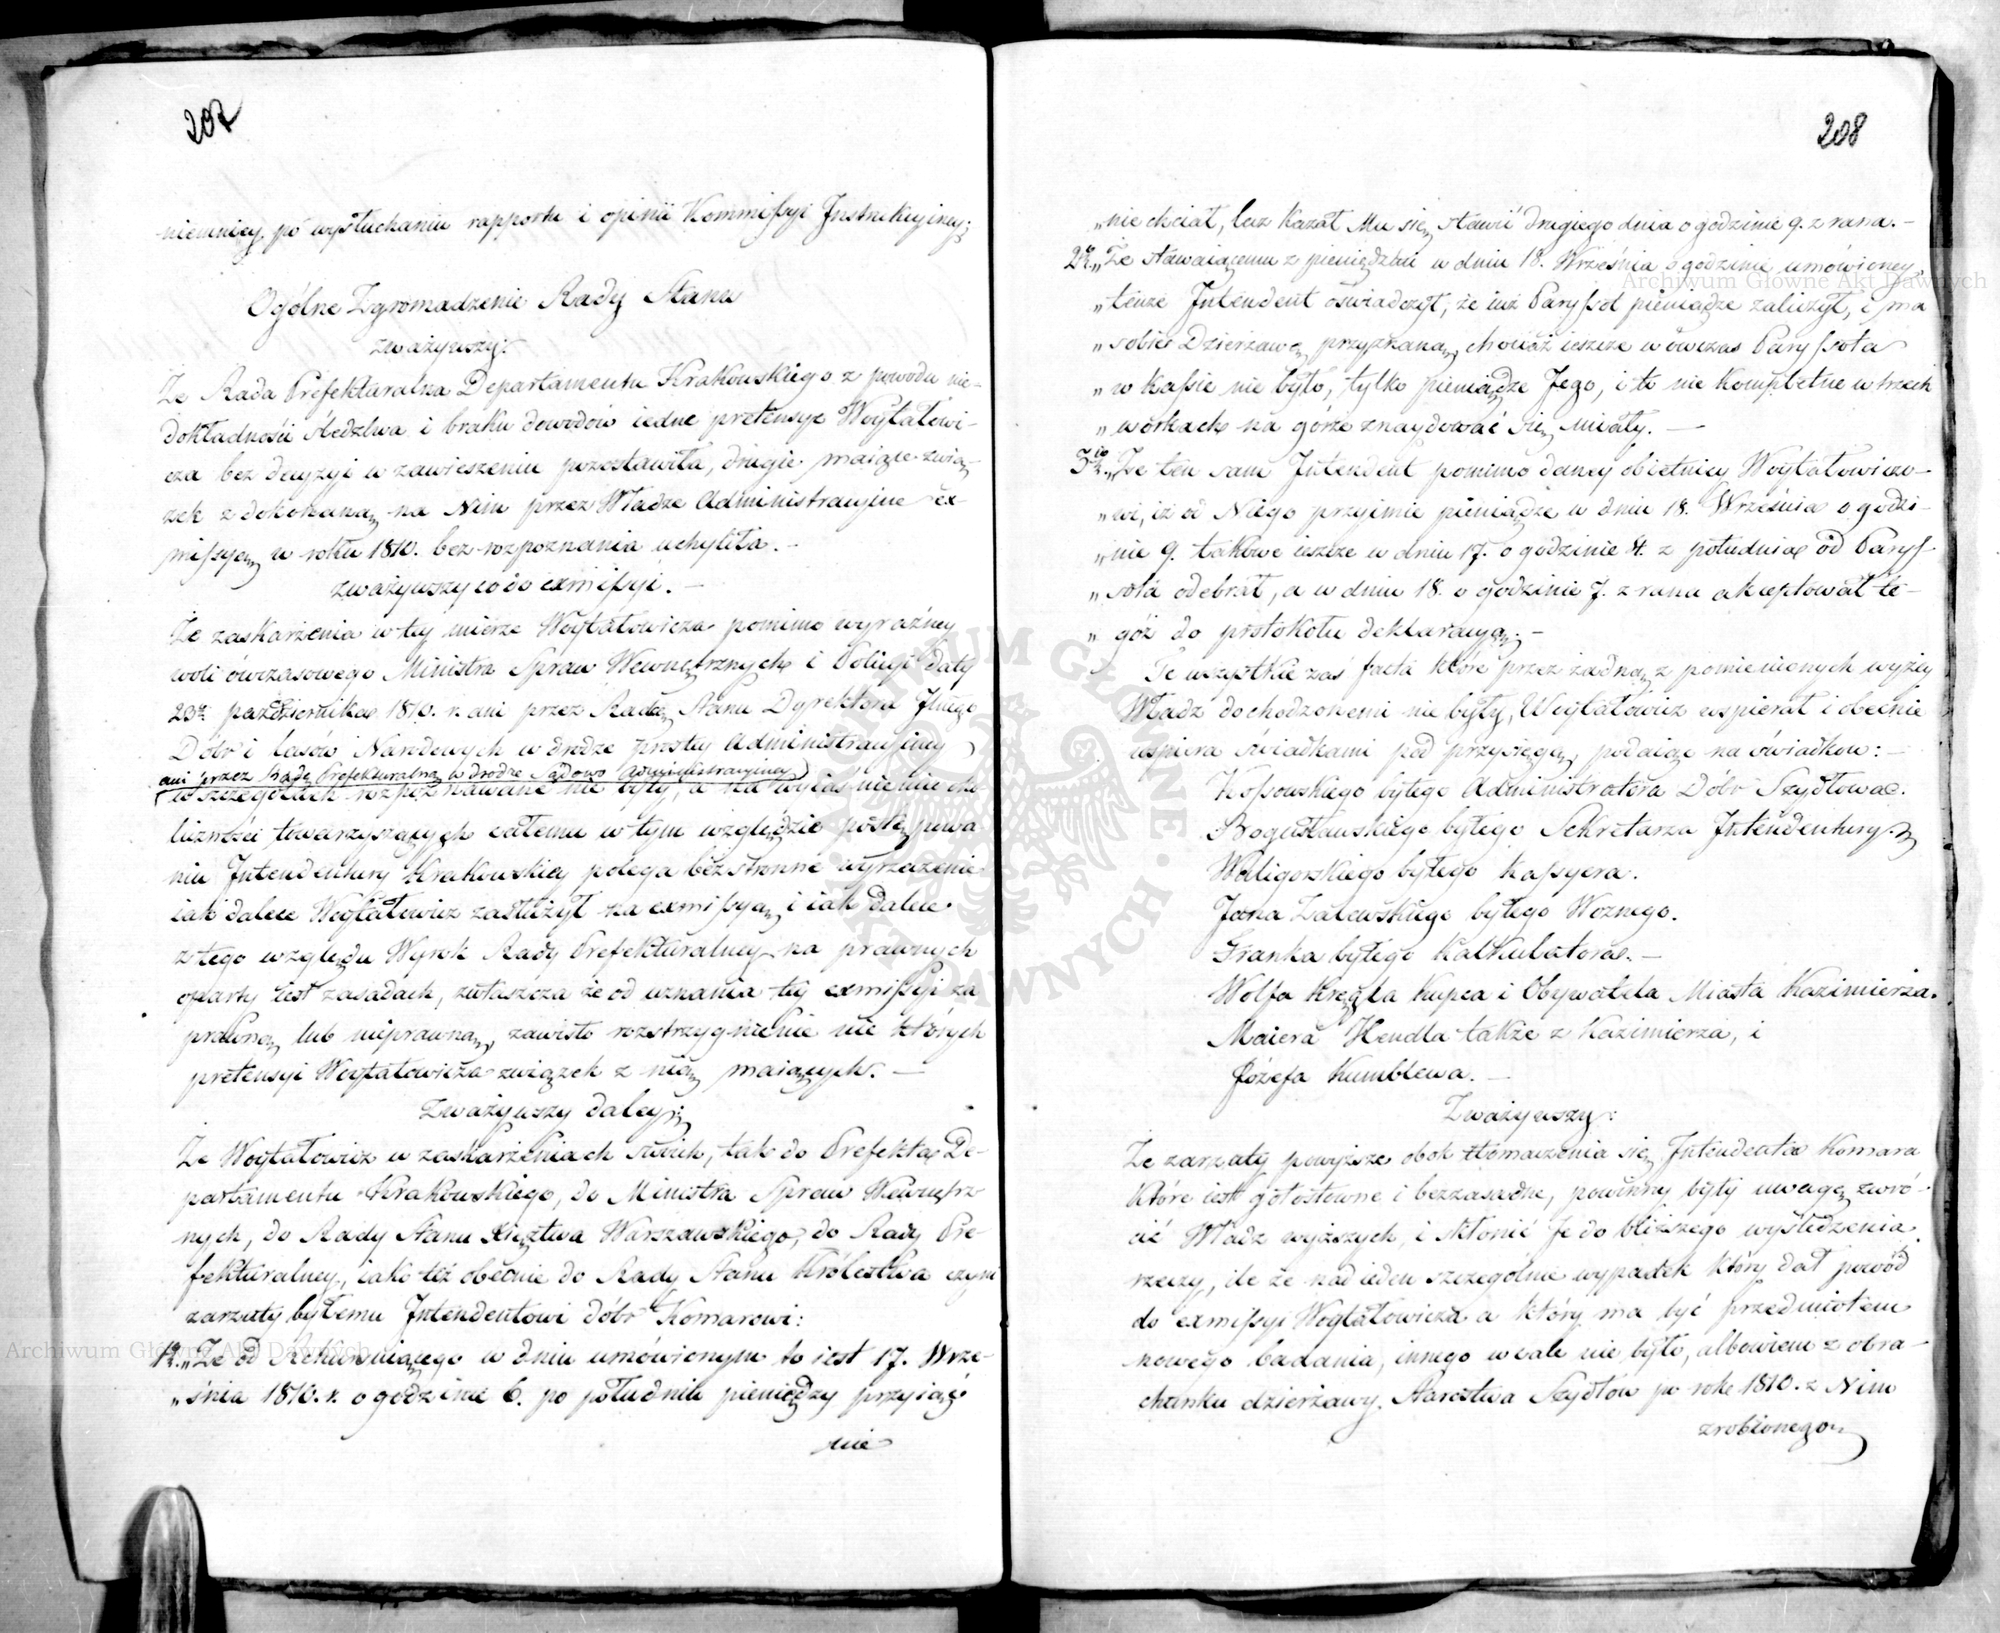 207
niemniey po wysłuchaniu rapportu i opinii Kommissyi Instrukcyiney;
Ogólne Zgromadzenie Rady Stanu
zważywszy:
Że Rada Prefekturalna Departamentu Krakowskiego z powodu nie-
dokładności śledztwa i braku dowodów iedne pretensye Woytałowi-
cza bez decyzyi w zawieszeniu pozostawiła, drugie maiące zwią-
zek z dokonaną na Nim przez Władze Administracyine ex-
missyą w roku 1810. bez rozpoznania uchyliła. -
zważywszy co do exmissyi. -
Że zaskarżenia w tey mierze Woytałowicza pomimo wyraźney
woli ówczasowego Ministra Spraw Wewnętrznych i Policyi daty
23go października 1810. r. ani przez Radcę Stanu Dyrektora Jlnego
Dóbr i Lasów Narodowych w drodze prosto Administracyiney
ani przez Radę Prefekturalną w drodze Sądowo Administracyiney
w szczegółach rozpoznawane nie były, a na wyiaśnieniu oko-
liczności towarzyszących całemu w tym względzie postępowa
niu Intendentury Krakowskiey polega bezstronne wyrzeczenie
iak dalece Woytałowicz zasłużył na exmissyą, i iak dalece
z tego względu Wyrok Rady Prefekturalney na prawnych
oparty iest zasadach, zwłaszcza że od uznania tey exmissyi za
prawną lub nieprawną, zawisło rozstrzygnienie nie których
pretensyi Woytałowicza związek z nią maiących. -
Zważywszy daley:
Że Woytałowicz w zaskarżeniach swych, tak do Prefekta De-
partamentu Krakowskiego, do Ministra Spraw Wewnętrz-
nych, do Rady Stanu Xięztwa Warszawskiego, do Rady Pre-
fekturalney, iako też obecnie do Rady Stanu Królestwa czyni
zarzuty byłemu Intendentowi dóbr Komarowi:
1o „Że od Rekurruiącego w dniu umówionym to iest 17. Wrze-
„śnia 1810. r. o godzinie 6. po południu pieniędzy przyiąć
nie
208
„nie chciał, lecz kazał Mu się stawić drugiego dnia o godzinie 9. z rana. -
2o „Że stawaiącemu z pieniędzmi w dniu 18. Września o godzinie umówioney,
„tenże Intendent oświadczył, że iuż Paryssot pieniądze zaliczył, i ma
„sobie Dzierżawę przyznaną, chociaż ieszcze wówczas Paryssota
„w kassie nie było, tylko pieniądze Jego, i to nie kompletne w trzech
„workach na górze znaydować się miały. -
3o „Że ten sam Intendent pomimo daney obietnicy Woytałowiczo-
„wi, iż od Niego przyimie pieniądze w dniu 18. Września o godzi-
„nie 9. takowe ieszcze w dniu 17. o godzinie 4. z południa od Parys-
„sota odebrał, a w dniu 18. o godzinie 7. z rana akceptował te-
„goż do protokołu deklaracyą. -
Te wszystkie zaś facta które przez żadną z pomienionych wyżey
Władz dochodzonemi nie były, Woytałowicz wspierał i obecnie
wspiera świadkami pod przysięgą, podaiąc na świadków: -
Kossowskiego byłego Administratora Dóbr Szydłowa.
Bogusławskiego byłego Sekretarza Intendentury.
Waligorskiego byłego Kassyera.
Jana Zalewskiego byłego Woźnego.
Franka byłego Kalkulatora. -
Wolfa Kręgla kupca i Obywatela Miasta Kazimierza.
Maiera Hendla także z Kazimierza, i
Józefa Kumblewa. -
Zważywszy:
Że zarzuty powyższe obok tłomaczenia się Intendenta Komara
które iest gołosłowne i bezzasadne, powinny były uwagę zwró-
cić Władz wyższych, i skłonić Je do bliższego wyśledzenia
rzeczy, ile że nad ieden szczególnie wypadek który dał powód
do exmissyi Woytałowicza a który ma być przedmiotem
nowego badania, innego wcale nie było, albowiem z obra-
chunku dzierżawy Starostwa Szydłów po rok 1810. z Nim
zrobionego